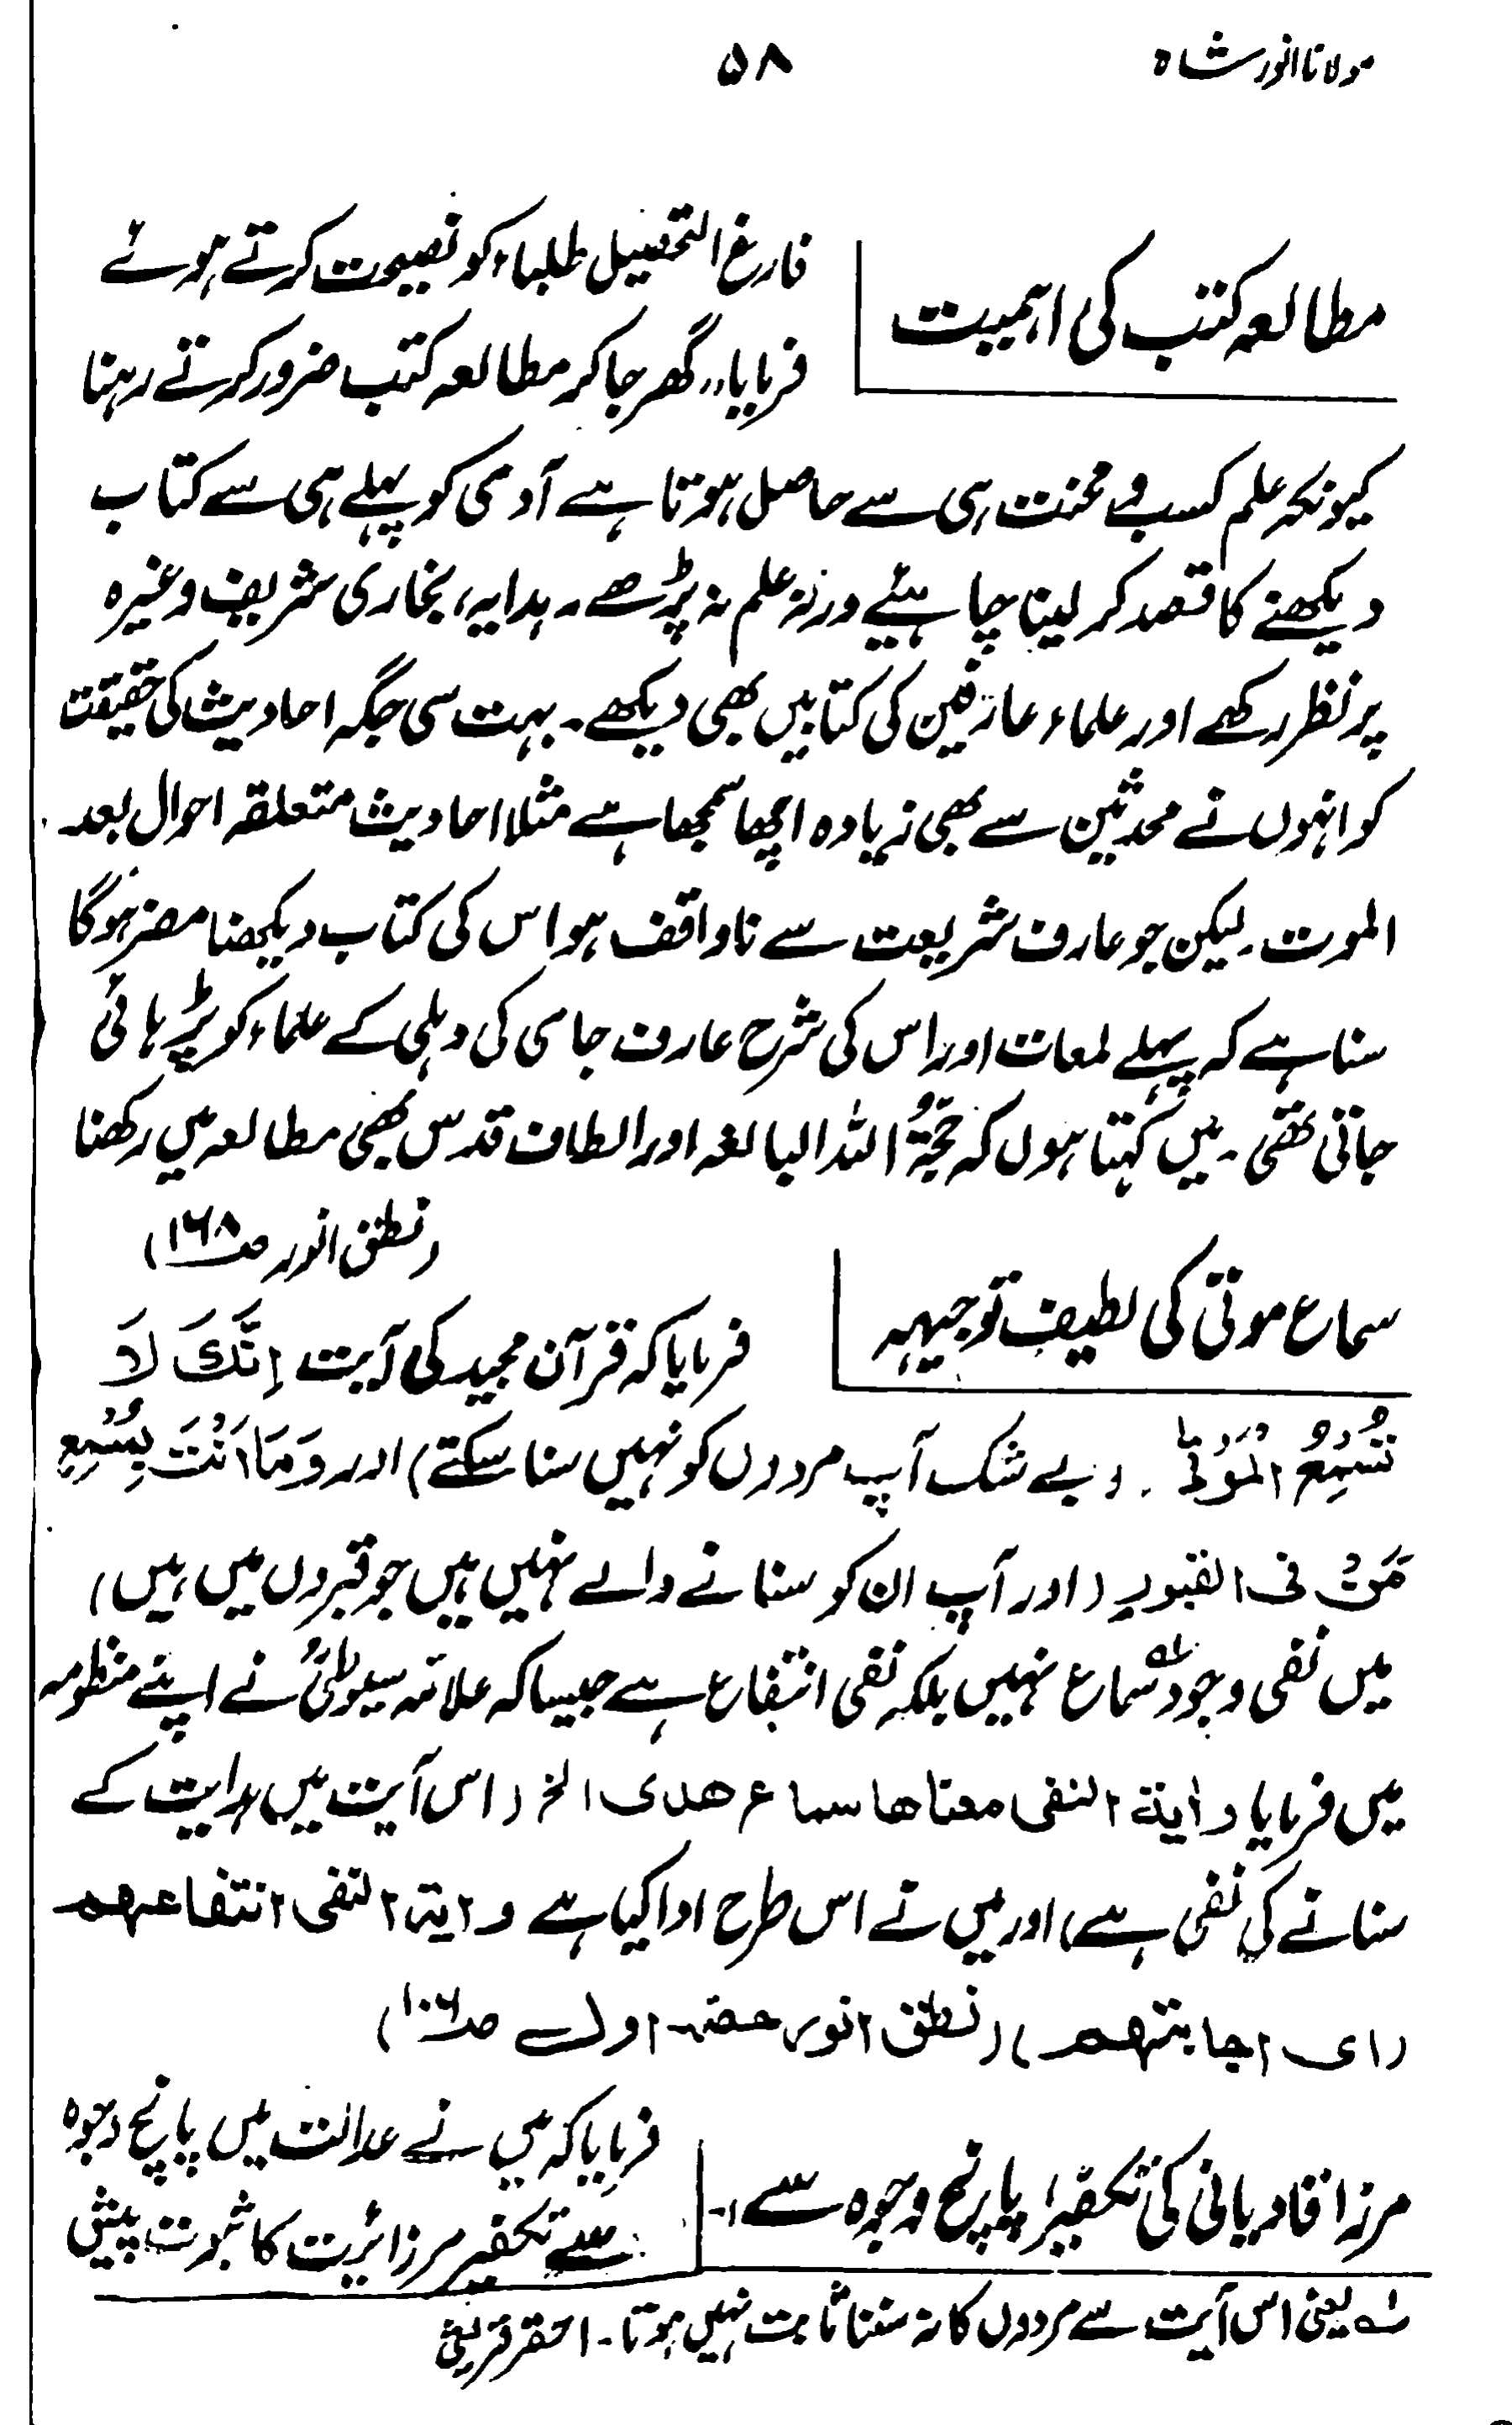 مولانا انور شاہ
۵۸
مطالعہ کتب کی اہمیت
فارغ التحصیل طلباء کو نصیحت کرتے ہوئے
فرمایا،، گھر جا کر مطالعہ کتب ضرور کرتے رہنا
کیونکہ علم کسب و محنت ہی سے حاصل ہوتا ہے آدمی کو پہلے ہی سے کتاب
دیکھنے کا قصد کر لینا چاہئیے ورنہ علم نہ پڑھے۔ ہدایہ، بخاری شریف وغیرہ
پر نظر رکھے اور علماء عارفین کی کتابیں بھی دیکھے۔ بہت سی جگہ احادیث کی حقیقت
کو انہوں نے محدثین سے بھی زیادہ اچھا سمجھا ہے مثلا احادیث متعلقہ احوال بعد
الموت۔ لیکن جو عارف شریعت سے ناواقف ہو اس کی کتاب دیکھنا مضر ہوگا
سنا ہے کہ پہلے لمعات اور اس کی شرح عارف جامی کی دہلی کے علماء کو پڑہائی
جاتی تھی۔ میں کہتا ہوں کہ حجۃُ اللہ البالغہ اور الطاف قدس بھی مطالعہ میں رکھنا
(نطق انور صـ۱۶۸)
سماع موتی کی لطیف توجیہہ
فرمایا کہ قرآن مجید کی آیت اِنَّكَ لَا
تُسْمِعُ الْمَوْتٰی۔ (بے شک آپ مردوں کو نہیں سنا سکتے) اور وَمَا اَنْتَ بِمُسْمِعٍ
مَّنْ فی القبور (اور آپ ان کو سنانے والے نہیں ہیں جو قبروں میں ہیں)
میں نفی وجودِ سماع نہیں بلکہ نفی انتفاع ہے جیسا کہ علامہ سیوطیؒ نے اپنے منظومہ
میں فرمایا و اٰیۃ النفی معناھا سماع ھدی الخ (اس آیت میں ہدایت کے
سنانے کی نفی ہے) اور میں نے اس طرح ادا کیا ہے و ایۃ النفی انتفاعھم
(ای اجابتھم) (نطق انور حصہ اول صـ۱۰۶)
مرزا قادیانی کی تکفیر پانچ وجوہ سے :-
فرمایا کہ میں نے عدالت میں پانچ وجوہ
سے تکفیر مرزائیت کا ثبوت پیش
لہ یعنی اس آیت سے مردوں کا نہ سننا ثابت نہیں ہوتا۔ احقر قریشی